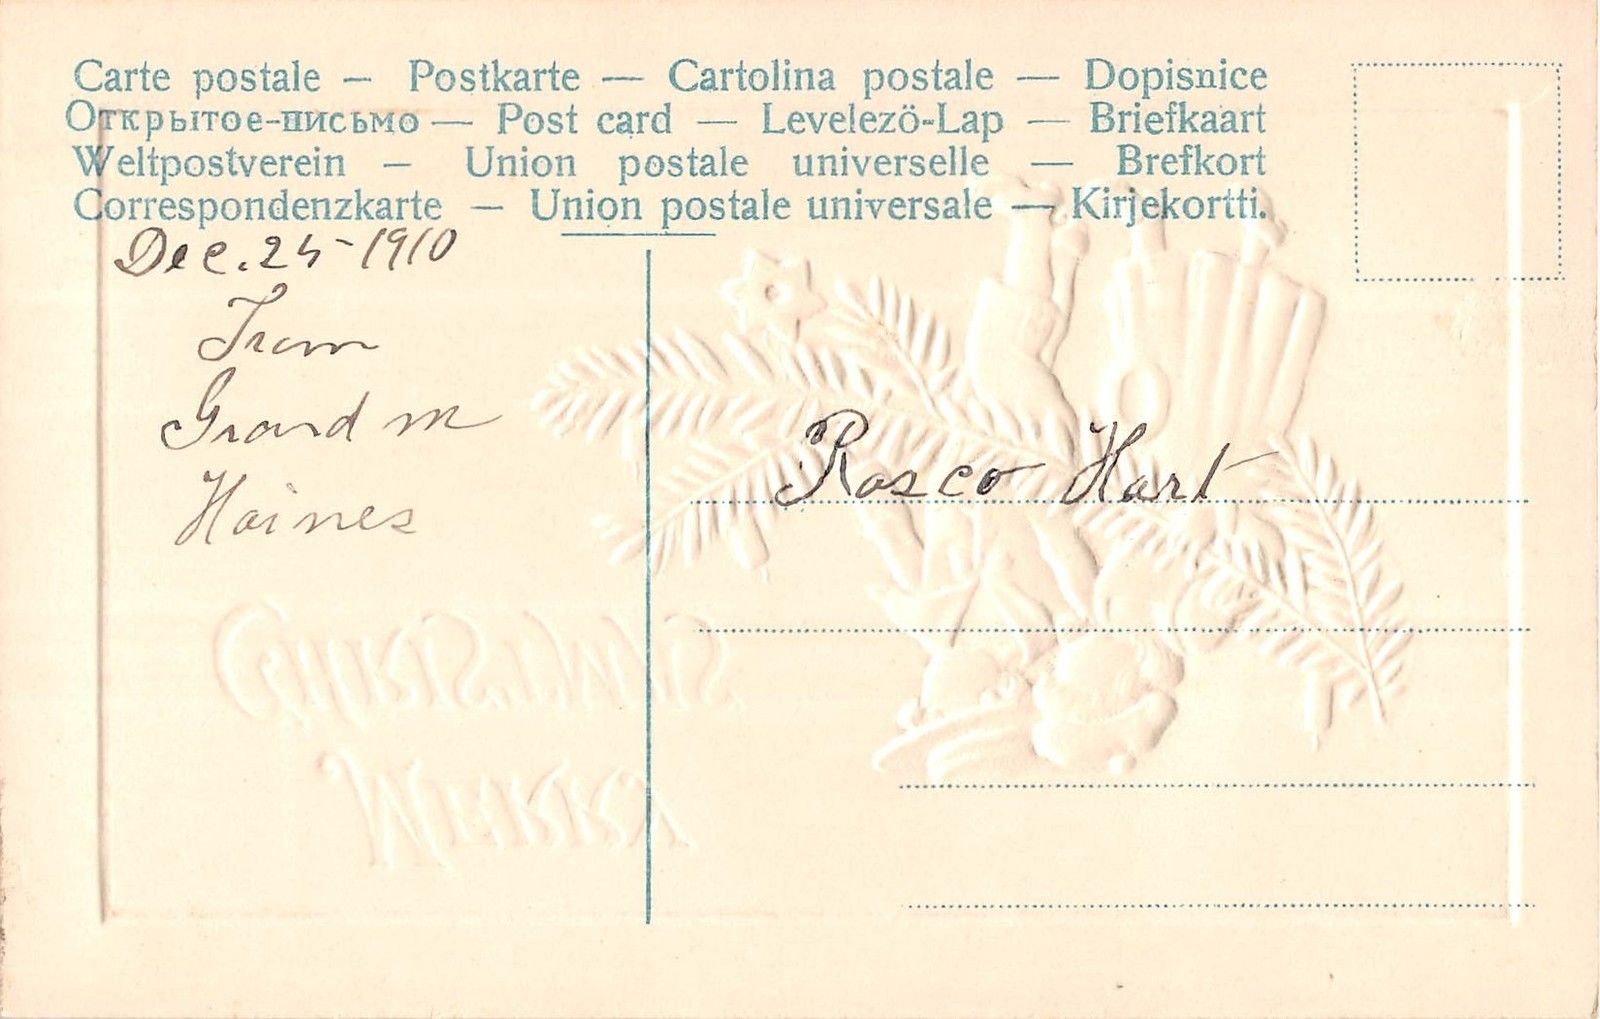 Carte postale — Postkarte — Cartolina postale — Dopisnice
Открытое-письмо — Post card — Levelezö-Lap — Briefkaart
Weltpostverein — Union postale universelle — Brefkort
Correspondenzkarte — Union postale universale — Kirjekortti.
Dec. 25-1910
From
Grand m
Haines
Rosco Hart
CHRISTMAS
MERRY